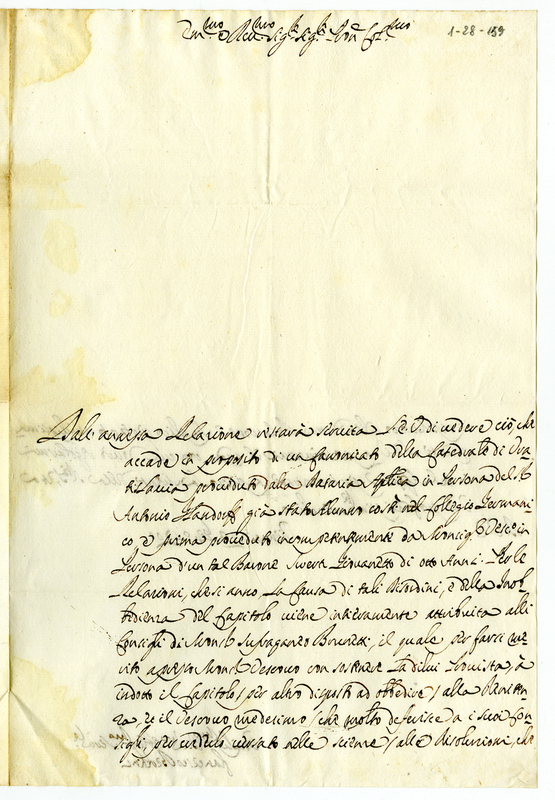 1-28-159
Dall'annessa Relazione restarà servita V. E. di vedere ciò, che
accade in proposito di un Canonicato della Catedrale di Vra-
tislavia proveduto dalla Dataria Aplica in Persona del
Antonio già stato Alunno costì nel Collegio Germani-
co e prima proveduto incompetentemente da Monsig. Vesco in
Persona d'un tal Barone Giovanetto di otto Anni. Per le
Relazioni, che si anno, la Causa di tali Disordini, e della Inob-
bedienza del Capitolo viene intieramente attribuita alli
Consigli di Monsr Sufraganeo Brunetti, il quale per farsi me-
rito appresso Monsr Vescovo con sostenere la di lui Provista, à
indotto il Capitolo / per altro disposto ad obbedire / alla
za, e il Vescovo medesimo / che molto deferisce a i suoi Con-
sigli, per crederlo versato nelle scienze / alle Risoluzioni, che